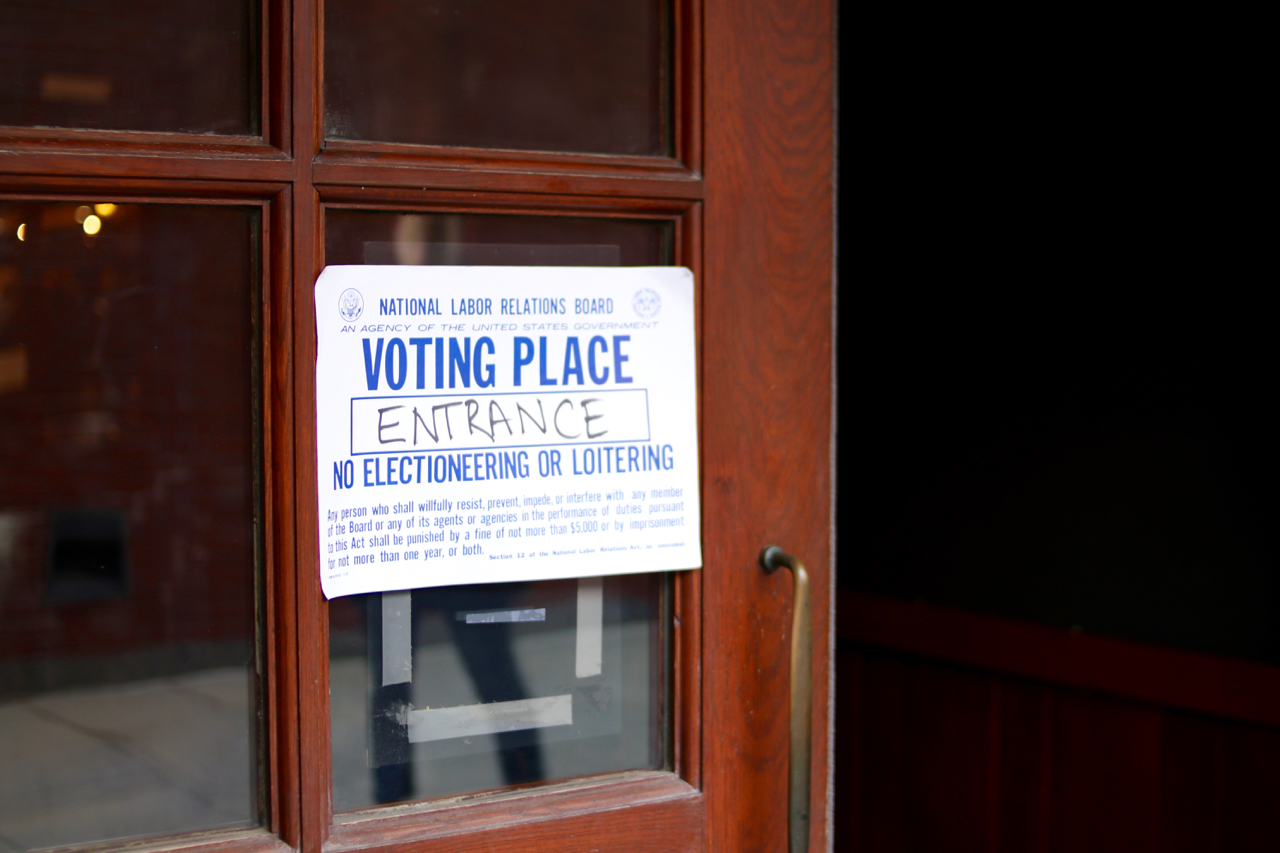 NATIONAL LABOR RELATIONS BOARD
AN AGENCY OF THE UNITED STATES GOVERNMENT
VOTING PLACE
ENTRANCE
NO ELECTIONEERING OR LOITERING
Any person who shall willfully resist, prevent, impede, or interfere with any member
of the Board or any of its agents or agencies in the performance of duties pursuant
to this Act shall be punished by a fine of not more than $5,000 or by imprisonment
for not more than one year, or both. Section 12 of the National Labor Relations Act, as amended